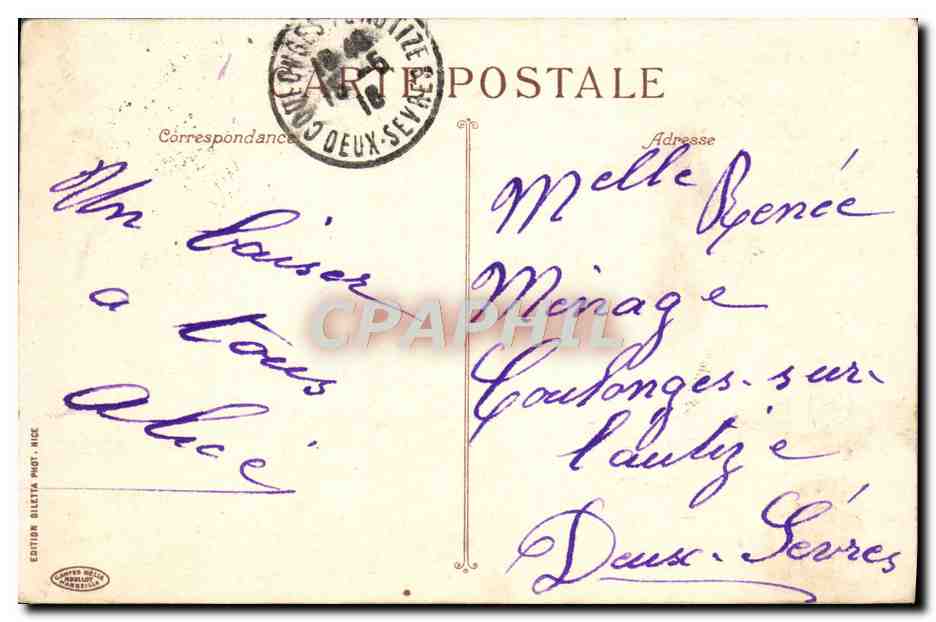 CARTE POSTALE
COULONGES
DEUX-SEVRES
18
Correspondance
Adresse
Un baiser
a tous
Alice
Melle Renée
Ménage
Coulonges-sur-
l'autize
Deux-Sèvres
CPAPHIL
EDITION GILETTA PHOT. NICE
MOULLOT
MARSEILLE